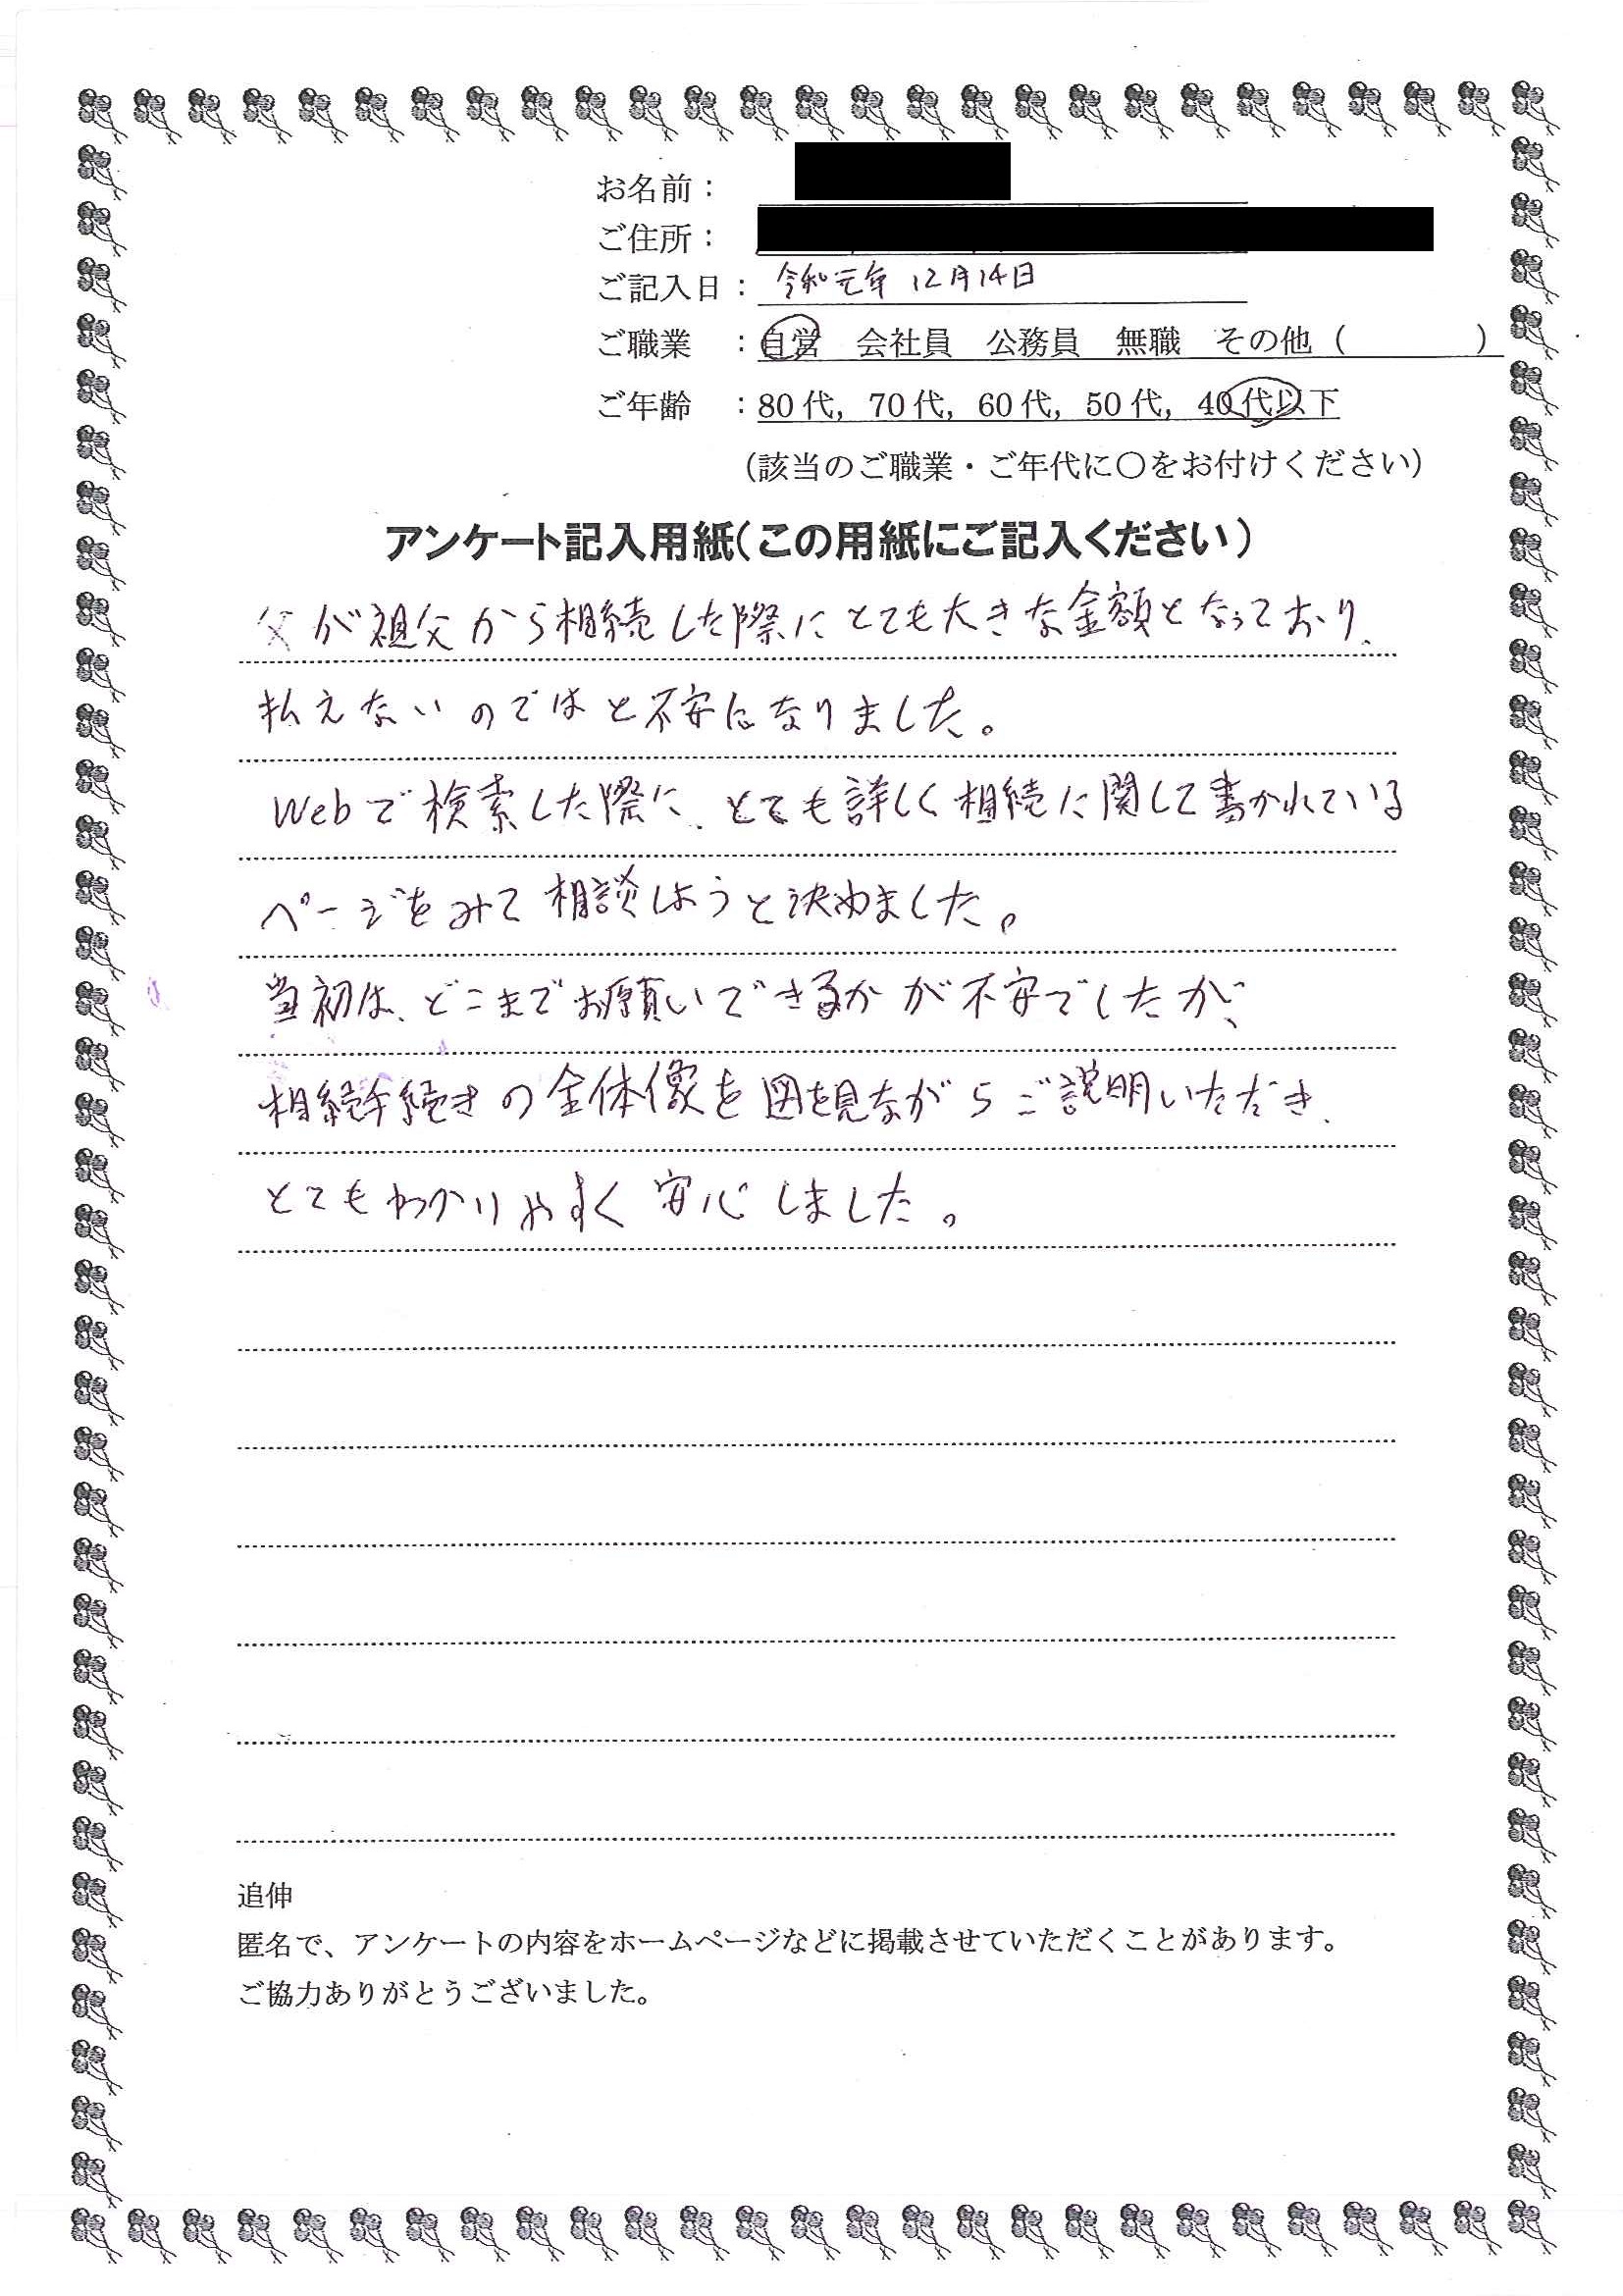 お名前：
ご住所：
ご記入日： 令和元年 12月14日
ご職業 ：自営 会社員 公務員 無職 その他（ ）
ご年齢 ：80代，70代，60代，50代，40代以下
（該当のご職業・ご年代に〇をお付けください）
アンケート記入用紙（この用紙にご記入ください）
父が祖父から相続した際にとても大きな金額となっており、
払えないのではと不安になりました。
Webで検索した際に、とても詳しく相続に関して書かれている
ページをみて相談しようと決めました。
当初は、どこまでお願いできるかが不安でしたが、
相続手続きの全体像を図を見ながらご説明いただき、
とてもわかりやすく安心しました。
追伸
匿名で、アンケートの内容をホームページなどに掲載させていただくことがあります。
ご協力ありがとうございました。